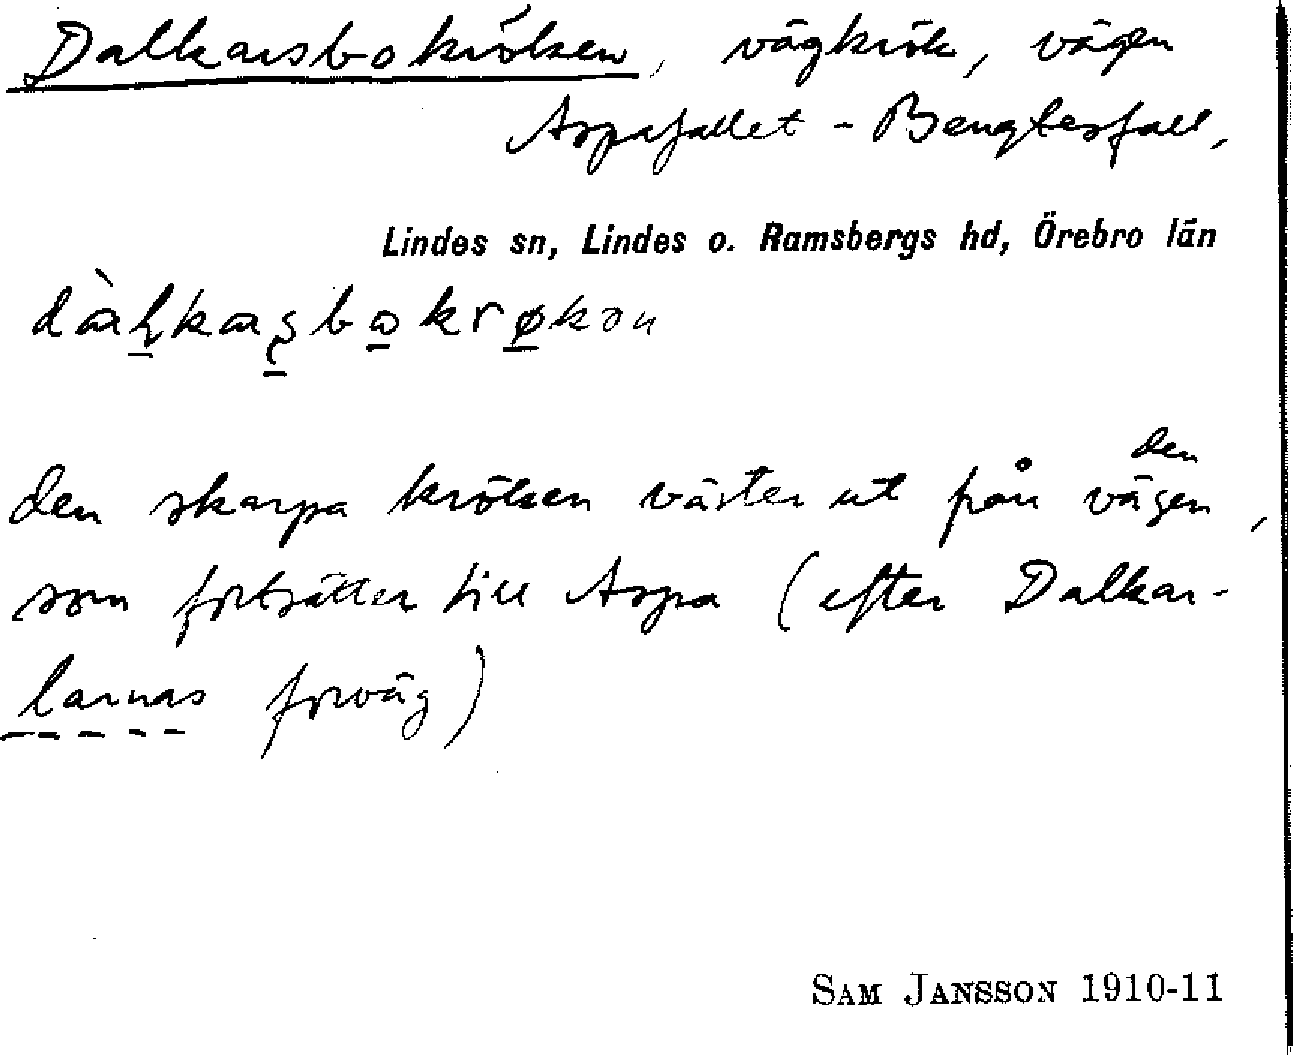 Dalkarsbokröken, vägkrök, vägen
Aspafallet - Bengtesfall,
Lindes sn, Lindes o. Ramsbergs hd, Örebro län
den skarpa kröken väster ut från den vägen,
som fortsätter till Aspa (efter Dalkar-
larnas forväg)
SAM JANSSON 1910-11